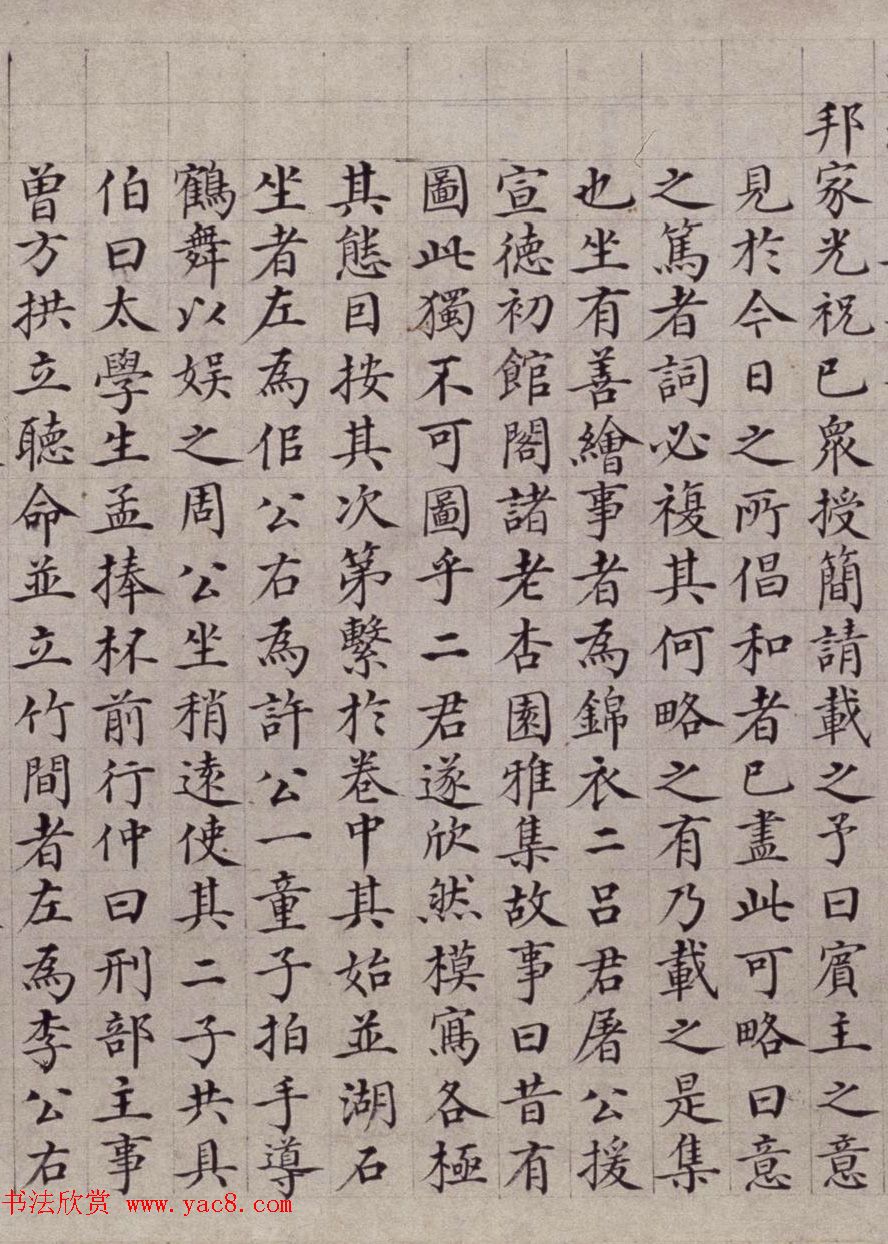 邦家光祝已衆授簡請載之予曰賓主之意
見於今日之所倡和者已盡此可略曰意
之篤者詞必複其何略之有乃載之是集
也坐有善繪事者為錦衣二呂君屠公援
宣德初館閣諸老杏園雅集故事曰昔有
圖此獨不可圖乎二君遂欣然模寫各極
其態因按其次第繫於卷中其始並湖石
坐者左為佀公右為許公一童子拍手導
鶴舞以娛之周公坐稍遠使其二子共具
伯曰太學生孟捧杯前行仲曰刑部主事
曾方拱立聽命並立竹間者左為李公右
书法欣赏 www.yac8.com